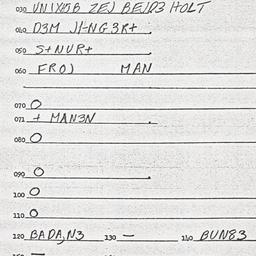 030 UNIX#5B ZEJ BE/D3 HOLT
040 D3M J/-NG3R+ .
050 S+NUR+
060 FROJ MAN
070 O
071 + MAN3N .
080 O
090 O
100 O
110 O
120 BADA,N3 130 — 140 BUN83